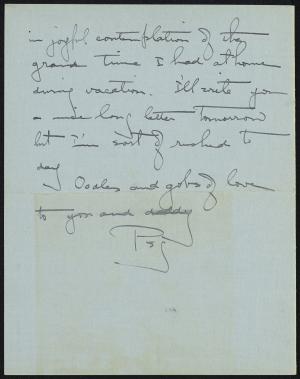 in joyful contemplation of the
grand time I had at home
during vacation. I'll write you
a nice long letter tomorrow
but I'm sort of rushed to
day Oodles and gobs of love
to you and daddy